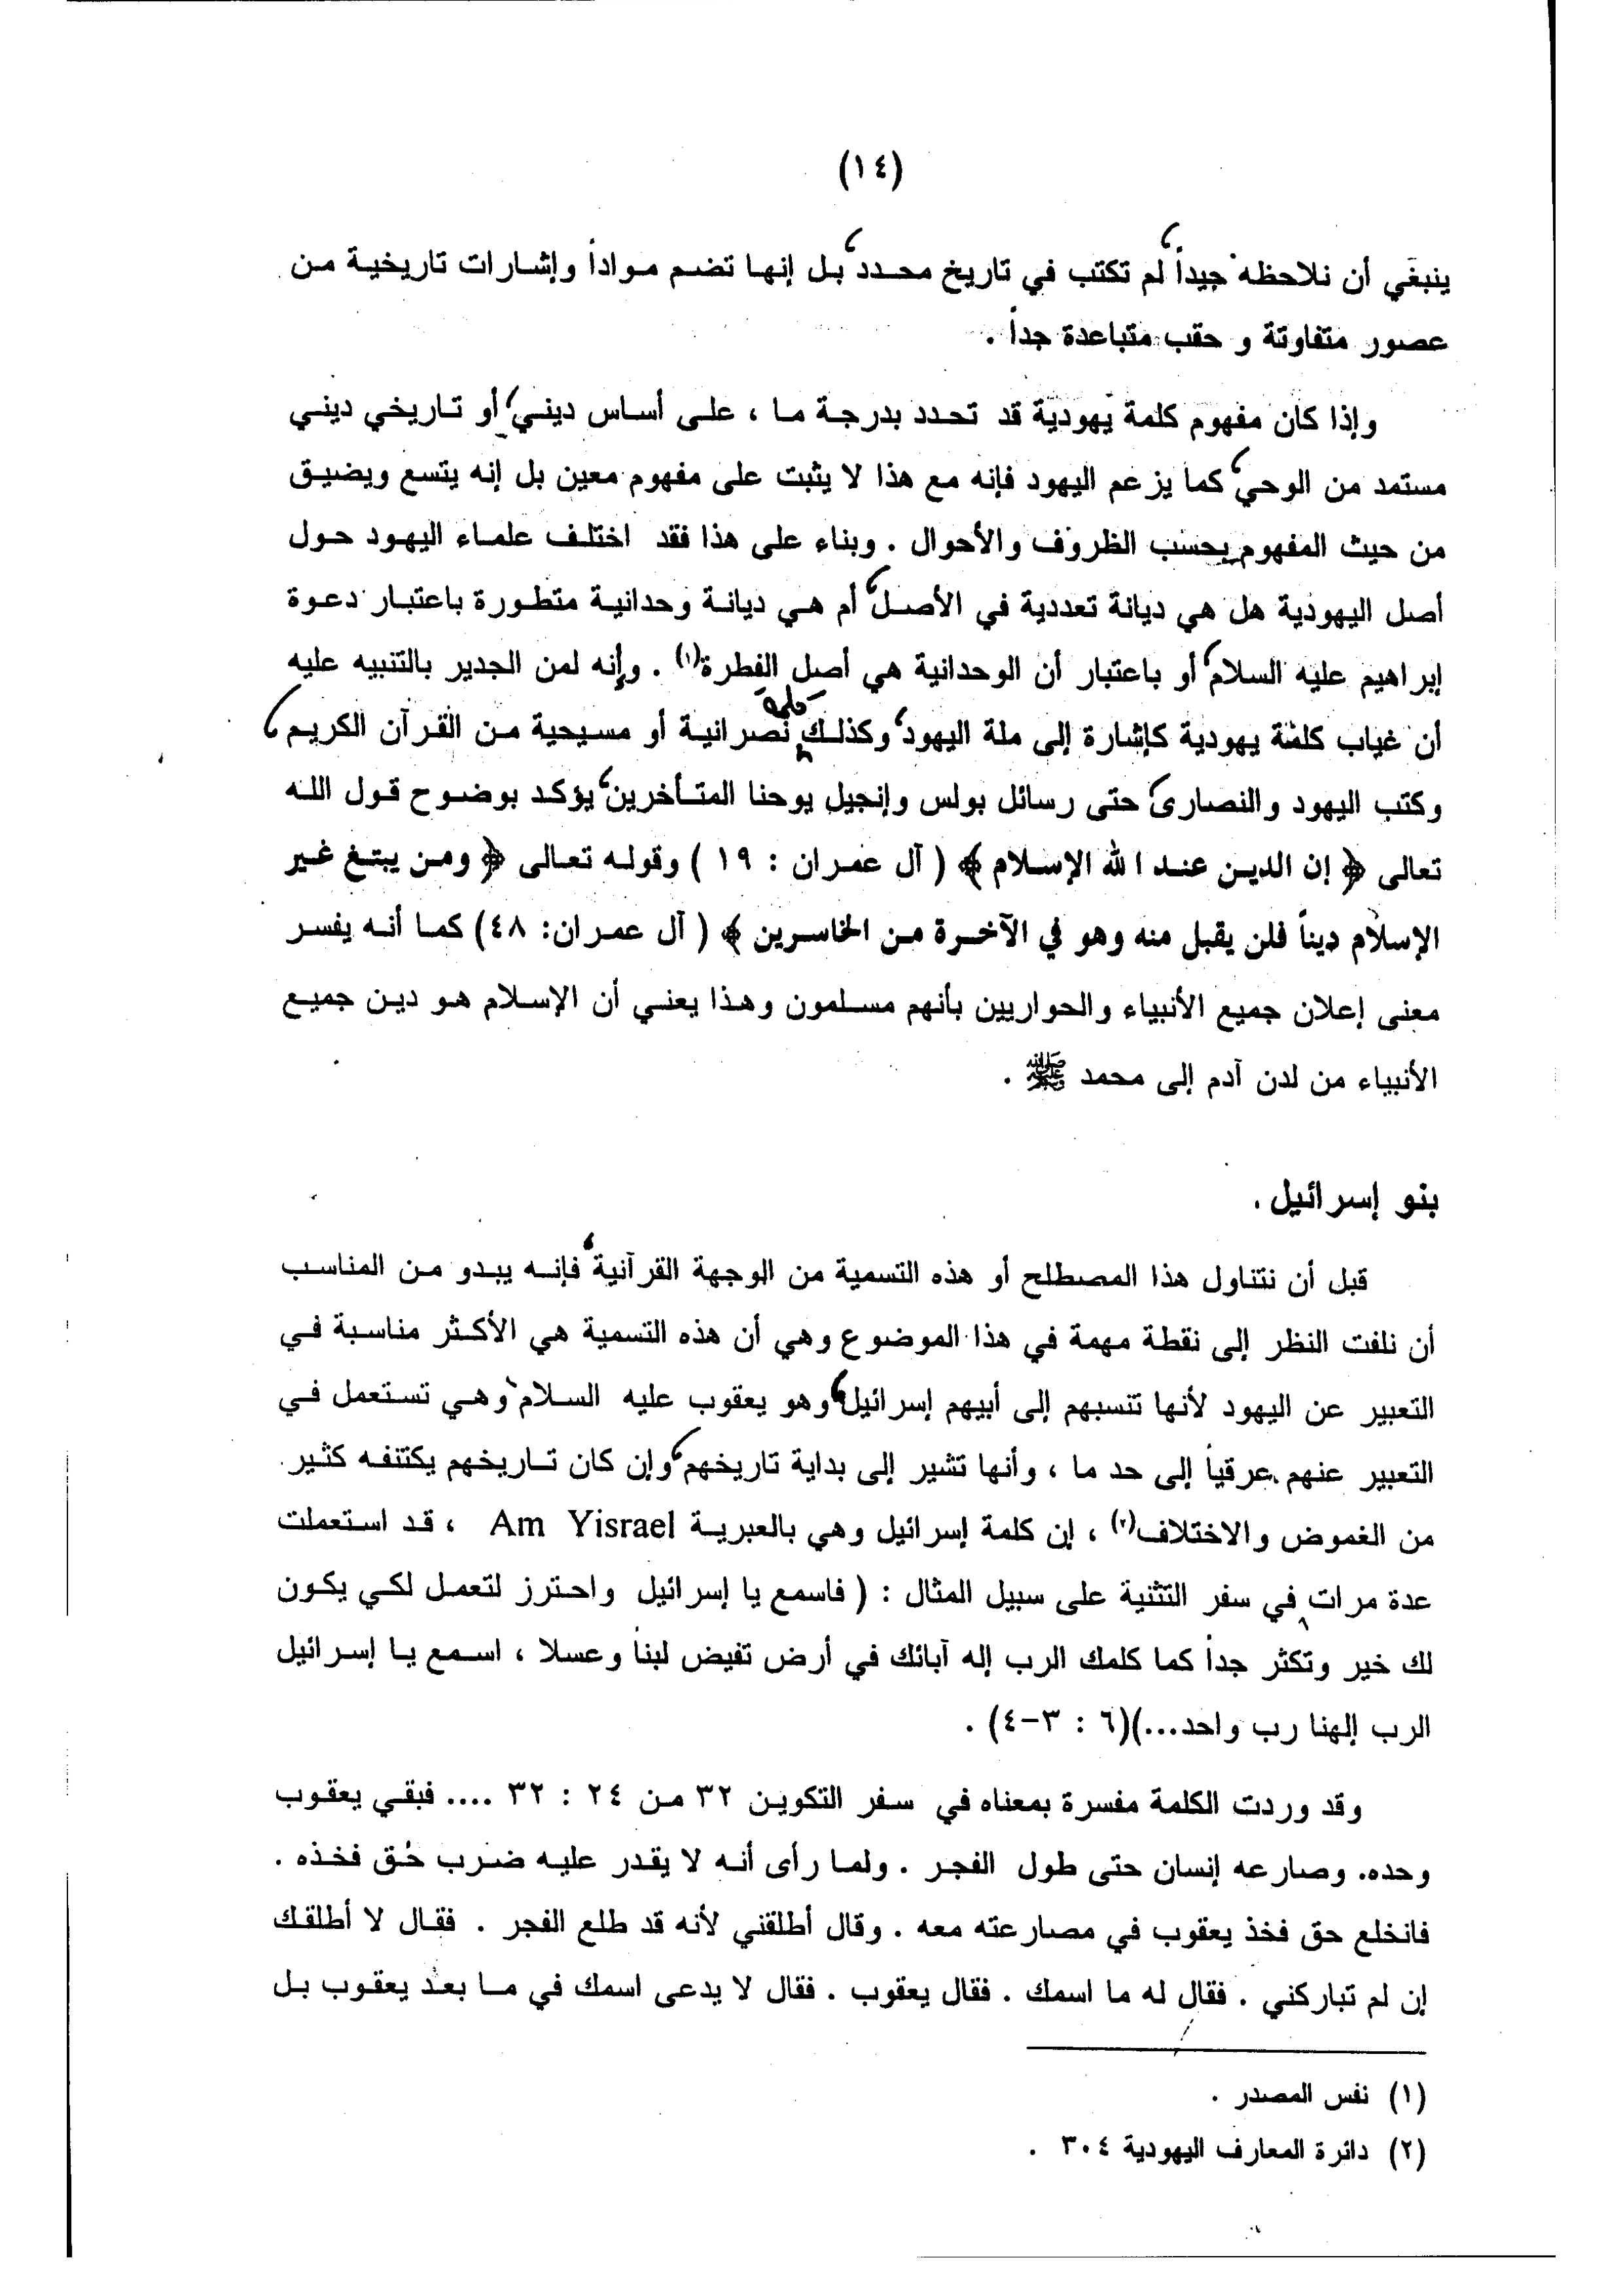 (١٤)
ينبغي أن نلاحظه جيداً، لم تكتب في تاريخ محدد، بل إنها تضم مواداً وإشارات تاريخية من
عصور متفاوتة و حقب متباعدة جداً .
وإذا كان مفهوم كلمة يهودية قد تحدد بدرجة ما ، على أساس ديني، أو تاريخي ديني
مستمد من الوحي، كما يزعم اليهود فإنه مع هذا لا يثبت على مفهوم معين بل إنه يتسع ويضيق
من حيث المفهوم بحسب الظروف والأحوال . وبناء على هذا فقد اختلف علماء اليهود حول
أصل اليهودية هل هي ديانة تعددية في الأصل، أم هي ديانة وحدانية متطورة باعتبار دعوة
إبراهيم عليه السلام، أو باعتبار أن الوحدانية هي أصل الفطرة(١) . وإنه لمن الجدير بالتنبيه عليه
أن غياب كلمة يهودية كإشارة إلى ملة اليهود، وكذلك كلمة نصرانية أو مسيحية من القرآن الكريم،
وكتب اليهود والنصارى، حتى رسائل بولس وإنجيل يوحنا المتأخرين، يؤكد بوضوح قول الله
تعالى ﴿ إن الدين عند الله الإسلام ﴾ ( آل عمران : ١٩ ) وقوله تعالى ﴿ ومن يبتغ غير
الإسلام ديناً فلن يقبل منه وهو في الآخرة من الخاسرين ﴾ ( آل عمران: ٤٨) كما أنه يفسر
معنى إعلان جميع الأنبياء والحواريين بأنهم مسلمون وهذا يعني أن الإسلام هو دين جميع
الأنبياء من لدن آدم إلى محمد ﷺ .
بنو إسرائيل .
قبل أن نتناول هذا المصطلح أو هذه التسمية من الوجهة القرآنية، فإنه يبدو من المناسب
أن نلفت النظر إلى نقطة مهمة في هذا الموضوع وهي أن هذه التسمية هي الأكثر مناسبة في
التعبير عن اليهود لأنها تنسبهم إلى أبيهم إسرائيل، وهو يعقوب عليه السلام، وهي تستعمل في
التعبير عنهم عرقياً إلى حد ما ، وأنها تشير إلى بداية تاريخهم، وإن كان تاريخهم يكتنفه كثير
من الغموض والاختلاف(٢) ، إن كلمة إسرائيل وهي بالعبرية Am Yisrael ، قد استعملت
عدة مرات في سفر التثنية على سبيل المثال : ( فاسمع يا إسرائيل واحترز لتعمل لكي يكون
لك خير وتكثر جداً كما كلمك الرب إله آبائك في أرض تفيض لبناً وعسلا ، اسمع يا إسرائيل
الرب إلهنا رب واحد...)(٦ : ٣-٤) .
وقد وردت الكلمة مفسرة بمعناه في سفر التكوين ٣٢ من ٢٤ : ٣٢ .... فبقي يعقوب
وحده. وصارعه إنسان حتى طول الفجر . ولما رأى أنه لا يقدر عليه ضرب حُق فخذه .
فانخلع حق فخذ يعقوب في مصارعته معه . وقال أطلقني لأنه قد طلع الفجر . فقال لا أطلقك
إن لم تباركني . فقال له ما اسمك . فقال يعقوب . فقال لا يدعى اسمك في ما بعد يعقوب بل
(١) نفس المصدر .
(٢) دائرة المعارف اليهودية ٣٠٤ .